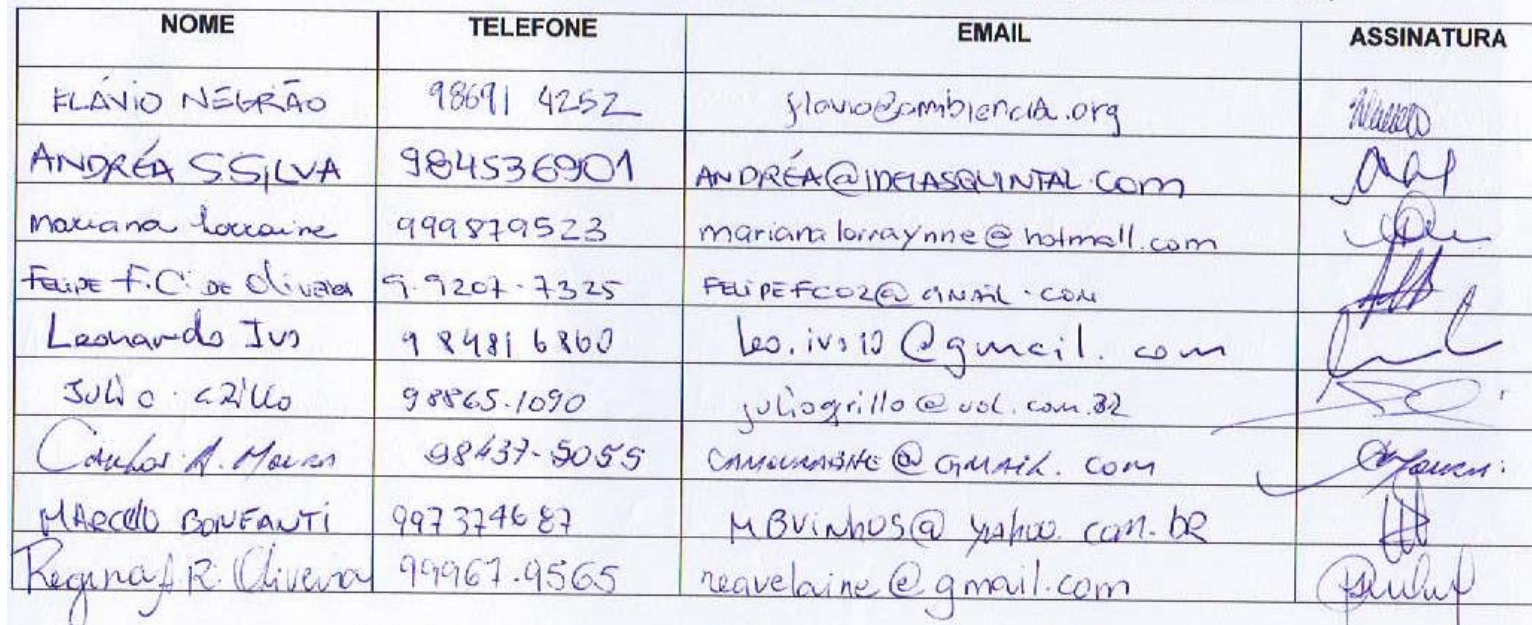 NOME TELEFONE EMAIL ASSINATURA
FLÁVIO NEGRÃO 98691 4252 flavio@ambiencia.org
ANDRÉA S SILVA 984536901 ANDRÉA@IDEIASQUINTAL.COM
Mariana Lorraine 999879523 mariana lorraynne@hotmall.com
FELIPE F.C. DE Oliveira 9.9207-7325 FELIPEFCO2@GMAIL.COM
Leonardo Ivo 9 8481 6860 leo.ivo10@gmail.com
JULIO GRILLO 98865.1090 juliogrillo@uol.com.br
Carlos A. Moura 98437-5055 @GMAIL.COM
MARCELO BONFANTI 997374687 MBVINHOS@yahoo.com.br
Regina R. Oliveira 99967-9565 reavelaine@gmail.com